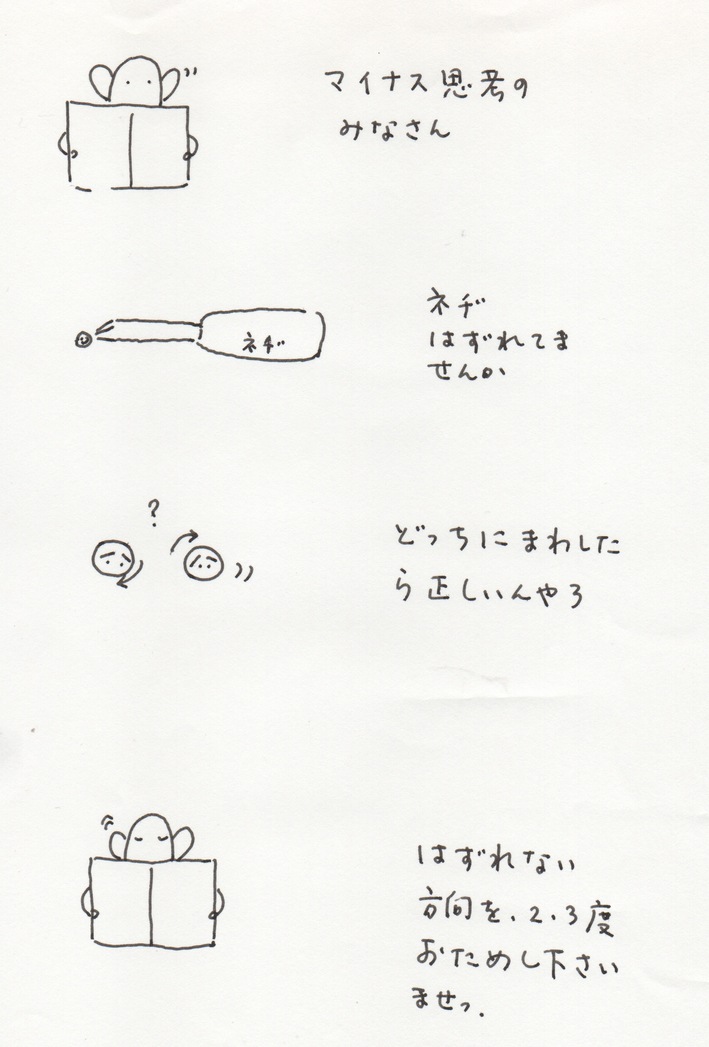 マイナス思考の
みなさん
ネヂ
ネヂ
はずれてま
せんか
?
どっちにまわした
ら正しいんやろ
はずれない
方向を、2、3度
おためし下さい
ませっ。